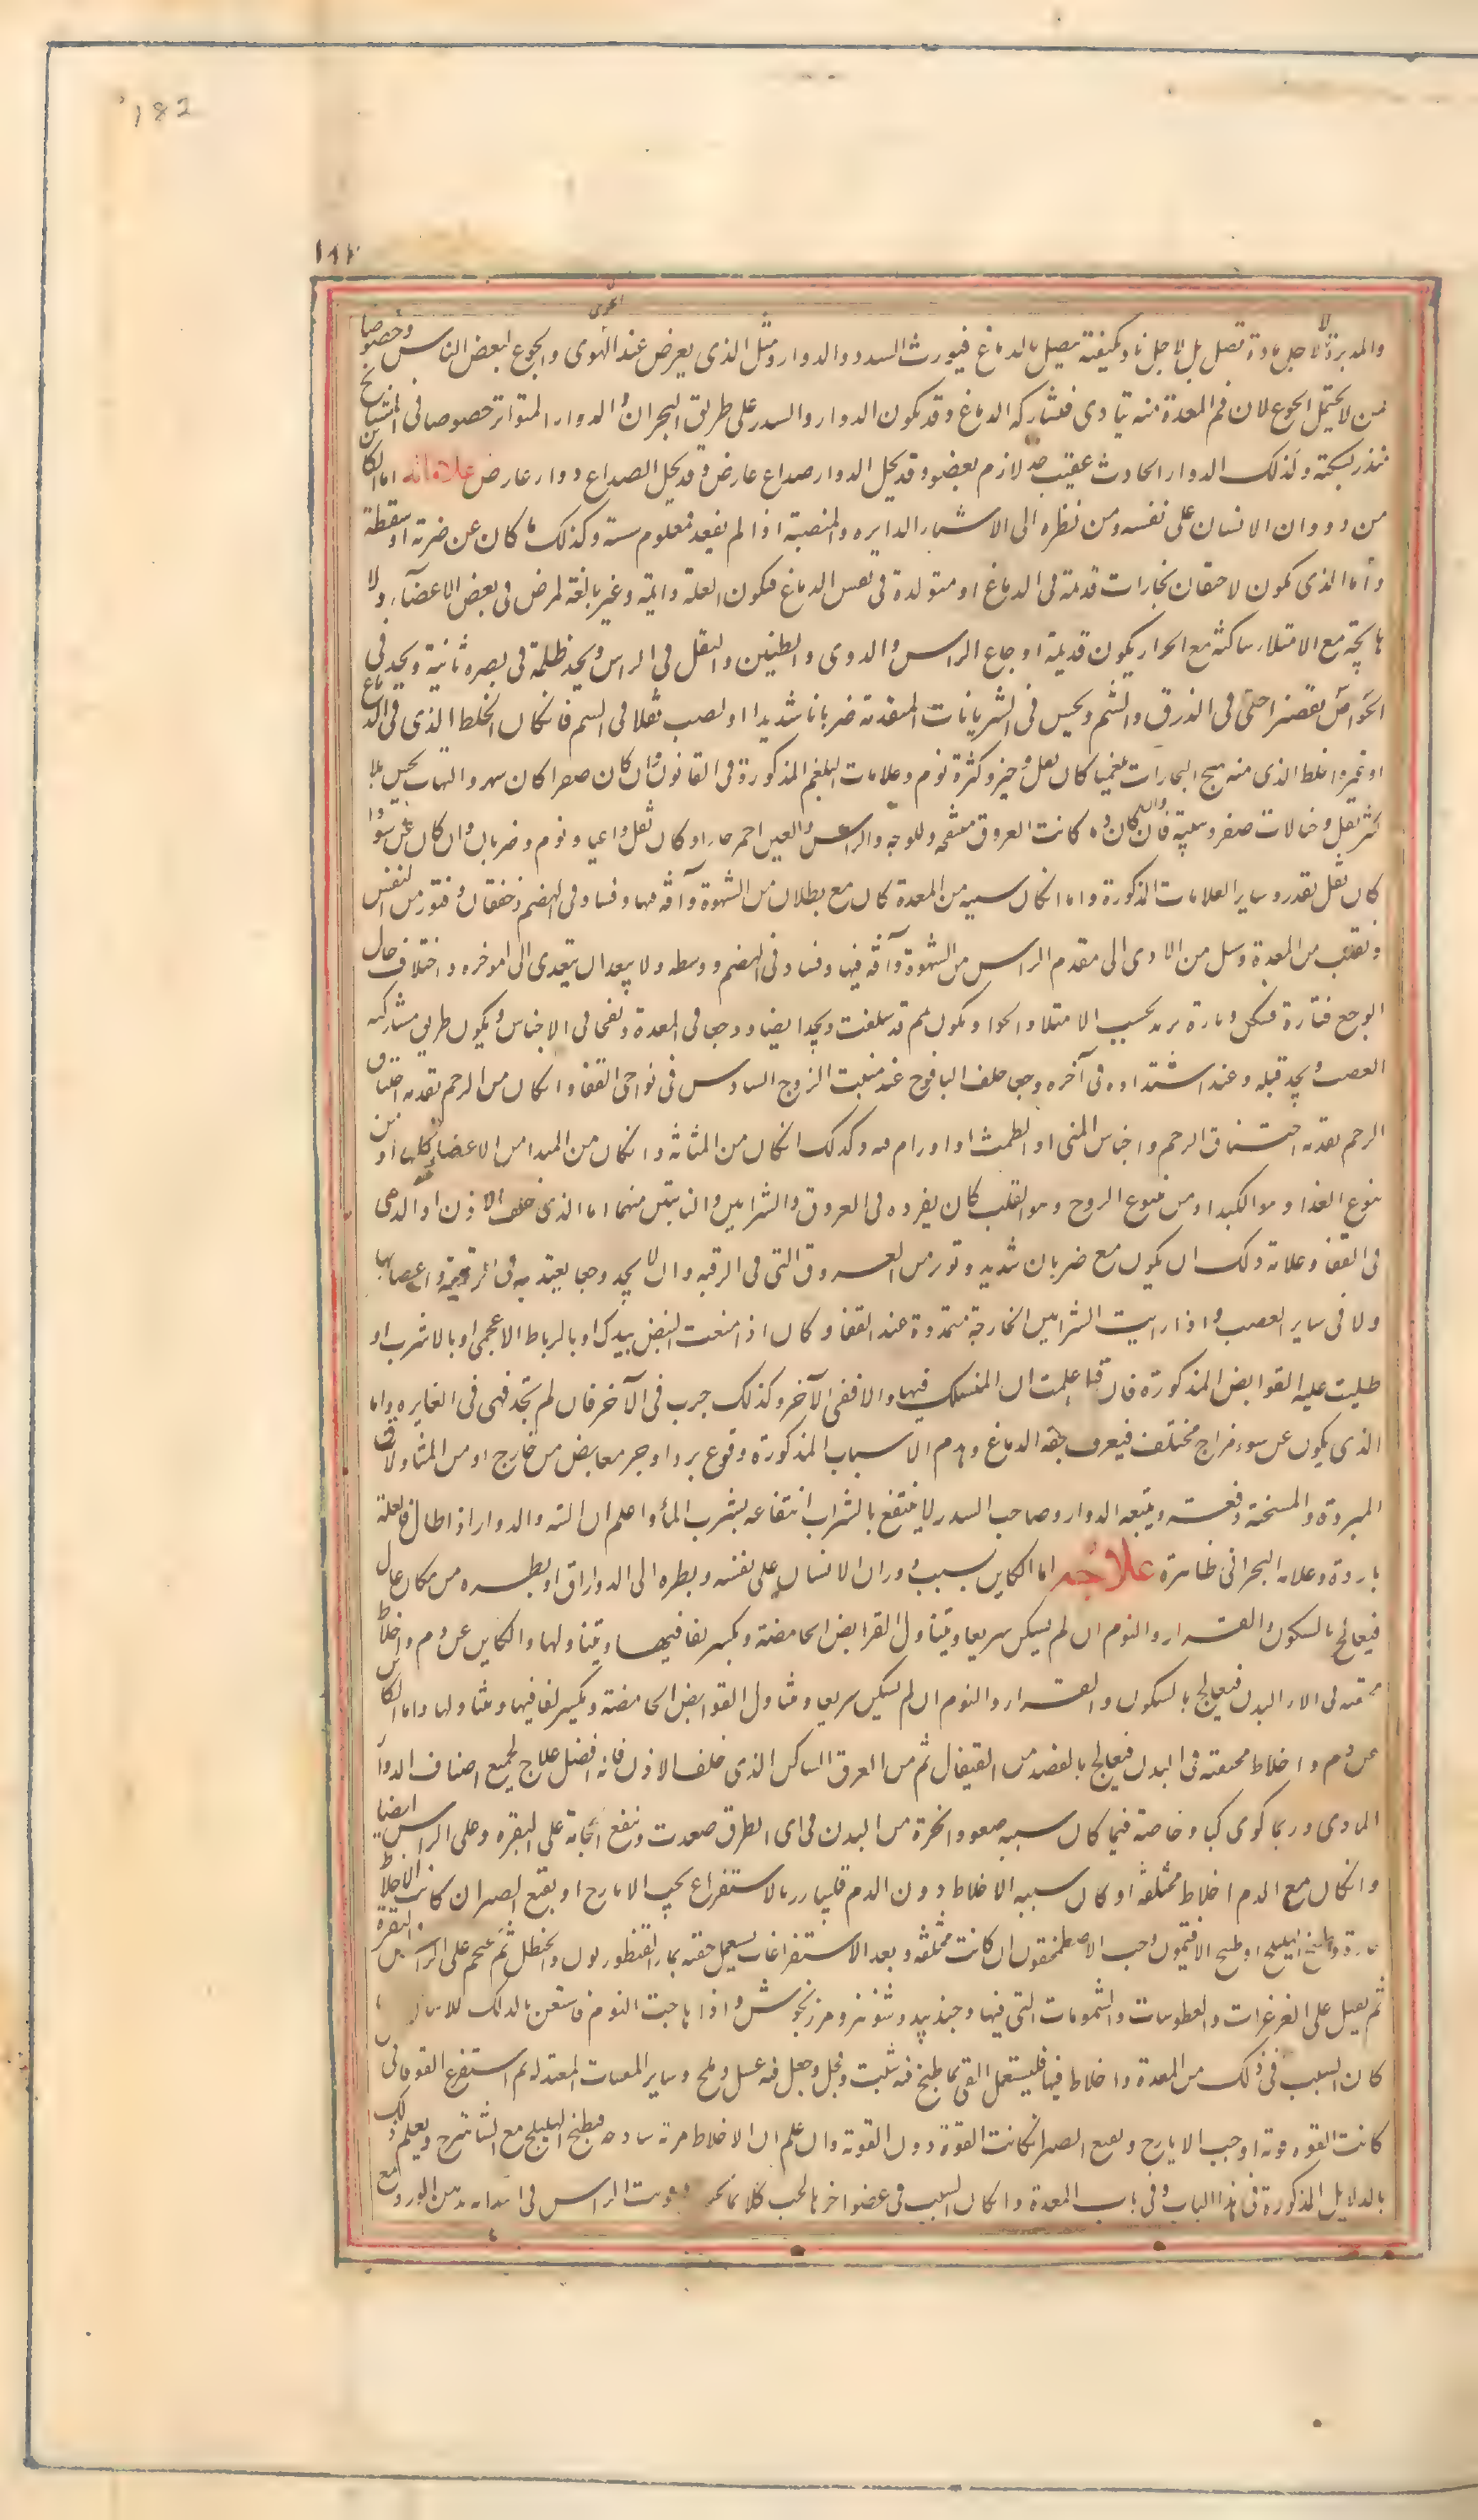 182
١٨٢
والمدبرة لا لاجل مادة تصل بل لاجل تادي كيفية تصل بالدماغ فيورث السدد والدوار ومثل الذي يعرض عند الهوى والجوع لبعض الناس وخصوصا
من لا يحتمل الجوع لان فم المعدة منه يتادى فيشاركه الدماغ وقد يكون الدوار والسدر على طريق البحران والدوار المتواتر خصوصا في المشايخ
منذر بسكتة وكذلك الدوار الحادث عقيب لازم بعضو وقد يحل الدوار صداع عارض وقد يحل الصداع دوار عارض علاماته اما الكاين
من دوران الانسان على نفسه ومن نظره الى الاشياء الدايره والمنصبة اذا لم يفيد فمعلوم سته وكذلك ما كان عن ضربة او سقطة
واما الذي يكون لاحتقان بخارات قديمة في الدماغ او متولدة في نفس الدماغ فيكون العلة دائمة وغير بالغة لمرض في بعض الاعضآء ولا
هايجة مع الامتلاء ساكنة مع الخوا ويكون قديمة اوجاع الراس والدوي والطنين والثقل في الراس ويجد ظلمة في بصره ثانية ويجد في
الحواس نقصنرا حتى في الذوق والشم ويحس في الشريانات المتقدمة ضربانا شديدا او يصب ثقلا في الشم فان كان الخلط الذي في الدماغ
او غيره الخلط الذي منه يهيج البخارات بلغميا كان ثقل وخبز وكثرة نوم وعلامات البلغم المذكورة في القانون وان كان صفرا كان سهر والتهاب يحس بلا
كثر ثقل وخيالات صفر وسلية فان كان كانت العروق منتفخة وللوجه والراس والعين احمر حارا وكان ثقل واعيا ونوم وضربان وان كان عن سودا
كان ثقل بقدر وساير العلامات المذكورة واما انكان سببه من المعدة كان مع بطلان من الشهوة وآفة فيها وفساد في الهضم وخفقان وفتور من النفس
وتقلب من المعدة وسل من الاذى الى مقدم الراس من الشهوة وآفة فيها وفساد في الهضم ووسطه ولا يبعد ان يتعدى الى موخره واختلاف حال
الوجع فتارة فيكن وتارة يزيد بحسب الامتلا والخوا ويكون قد سلفت ويجد ايضا وجعا في المعدة ونفخا في الاجناس ويكون طريق مشاركه
العصب ويجد قبله وعند اشتداده في آخره وجعا خلف اليافوخ عند منبت الزوج السادس في نواحي القفا وان كان من الرحم تقدمه اختناق
الرحم تقدمه اختناق الرحم واحباس المني او الطمث او اورام وكذلك انكان من المثانة وانكان من المبدا من الاعضاء كلها او من
ينبوع الغذا وهو الكبد او من ينبوع الروح وهو القلب كان يفرده في العروق والشرايين والنابتين منهما اما الذي خلف الاذن او الذي
في القفا وعلامة ذلك ان يكون مع ضربان شديد وتور من العروق التي في الرقبة وان لا يجد وجعا يعتد به في الرقبة واعصابها
ولا في ساير العصب واذا رايت الشرايين الخارجة متمددة عند القفا وكان اذا منعت النبض بيدك او بالرباط الاعجمي او بالاشرب او
طليت عليه القوابض المذكورة فان علمت ان المنسلك فيها والا ففي الآخر وكذلك جرب في الآخر فان لم تجد فهي في الغايره واما
الذي يكون عن سوء مزاج مختلف فيعرف بعد الدماغ ويتقدم الاسباب المذكورة وقوع برد او حر معابض من خارج او من المتناولات
المبردة والمسخنة دفعة ويتبعه الدوار وصاحب السدر لا ينتفع بالشراب انتفاعه بشرب المآ واعلم ان السد والدوار اذا طال فالعلة
باردة وعلامه البحراني ظاهرة علاجه اما الكاين بسبب دوران الانسان على نفسه ونظره الى الدوارات او بطره من مكان عال
فيعالج بالسكون والقرار والنوم ان لم يسكن سريعا ويتناول القرابض الحامضة ويكسر لقا فيها ويتناولها والكاين عن دم واخلاط
محتقنه في البدن فيعالج بالسكون والقرار والنوم ان لم يسكن سريعا ويتناول القوابض الحامضة ويكسر لقا فيها ويتناولها واما الكاين
عن دم واخلاط محتقنه في البدن فيعالج بالفصد من القيفال ثم من العرق الساكن الذي خلف الاذن فانه افضل علاج لجميع اصناف الدوا
المادي وربما كوي كيا وخاصة فيما كان سببه صعود ابخرة من البدن في اي الطرق صعدت وينفع الحجامة على النقره وعلى الراس ايضا
وانكان مع الدم اخلاط مختلفة او كان سببه الاخلاط دون الدم فليبادر بالاستفراغ بحب الايارج او بنقيع الصبر ان كانت الاخلاط
حارة وبطبخ الهليلج او طبيخ الافتيمون وحب الاصطمخيقون ان كانت مختلفة وبعد الاستفراغات يستعمل حقنة بماء القنطوريون والحنظل ثم يحجم على الراس النقرة
ثم يقبل على الغرغرات والعطوسات والشمومات التي فيها وجندبيد وشونيز ومرزنجوش واذا هاجت النوم فاستعن بالدلك للاسافل
كان السبب في ذلك من المعدة واخلاط فيها فليستعمل القي بما طبخ فيه شبت وفجل وجعل فيه عسل وملح وساير المقيات المعتدله ثم استفرغ القوى
كانت القوه قوية اوجب الايارج ونقيع الصبر انكانت القوة دون القوية وان علم ان الاخلاط مرة ساده فبطبخ الهليلج مع الشاهترج ويعلم ذلك
بالدلايل المذكورة في هذا الباب وفي باب المعدة وانكان السبب في عضو اخر بالحب كلا كما يجب وقويت الراس في ابتدائه بدهن الورد مع